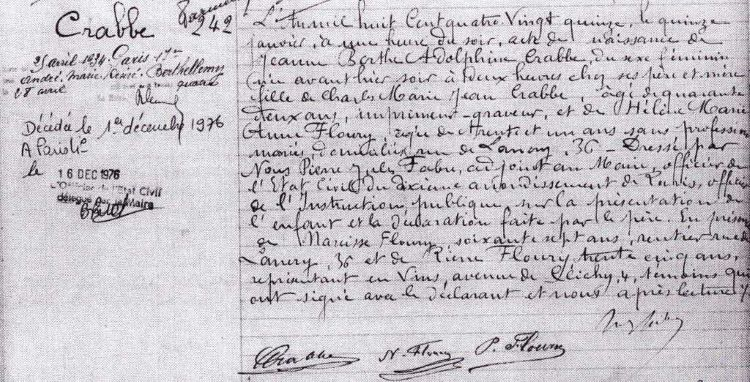 Crabbe
242
25 avril 1934 Paris 17e
André Marie René Berthellemy
28 avril
Décédée le 1er décembre 1976
A Paris
le 16 DEC 1976
L'Officier de l'Etat Civil
délégué par le Maire
L'An mil huit Cent quatre Vingt quinze, le quinze
janvier, à une heure du soir, acte de naissance de
Jeanne Berthe Adolphine Crabbe, du sexe féminin
née avant hier soir à deux heures chez ses père et mère
fille de Charles Marie Jean Crabbe, âgé de quarante
deux ans, imprimeur-graveur, et de Hélène Marie
Anne Floury, âgée de trente et un ans sans profession
mariés, domiciliés rue de Lancry, 36 - Dressé par
Nous Pierre Jules Fabre, adjoint au Maire, officier de
l'Etat Civil du dixième arrondissement de Paris, officier
de l'Instruction publique sur la présentation de
l'enfant et la déclaration faite par le père. En présence
de Narcisse Floury, soixante sept ans, rentier rue de
Lancry, 36 et de Pierre Floury trente cinq ans,
représentant en Vins, avenue de Clichy, 4, témoins qui
ont signé avec le déclarant et nous après lecture
Crabbe N. Floury P. Floury